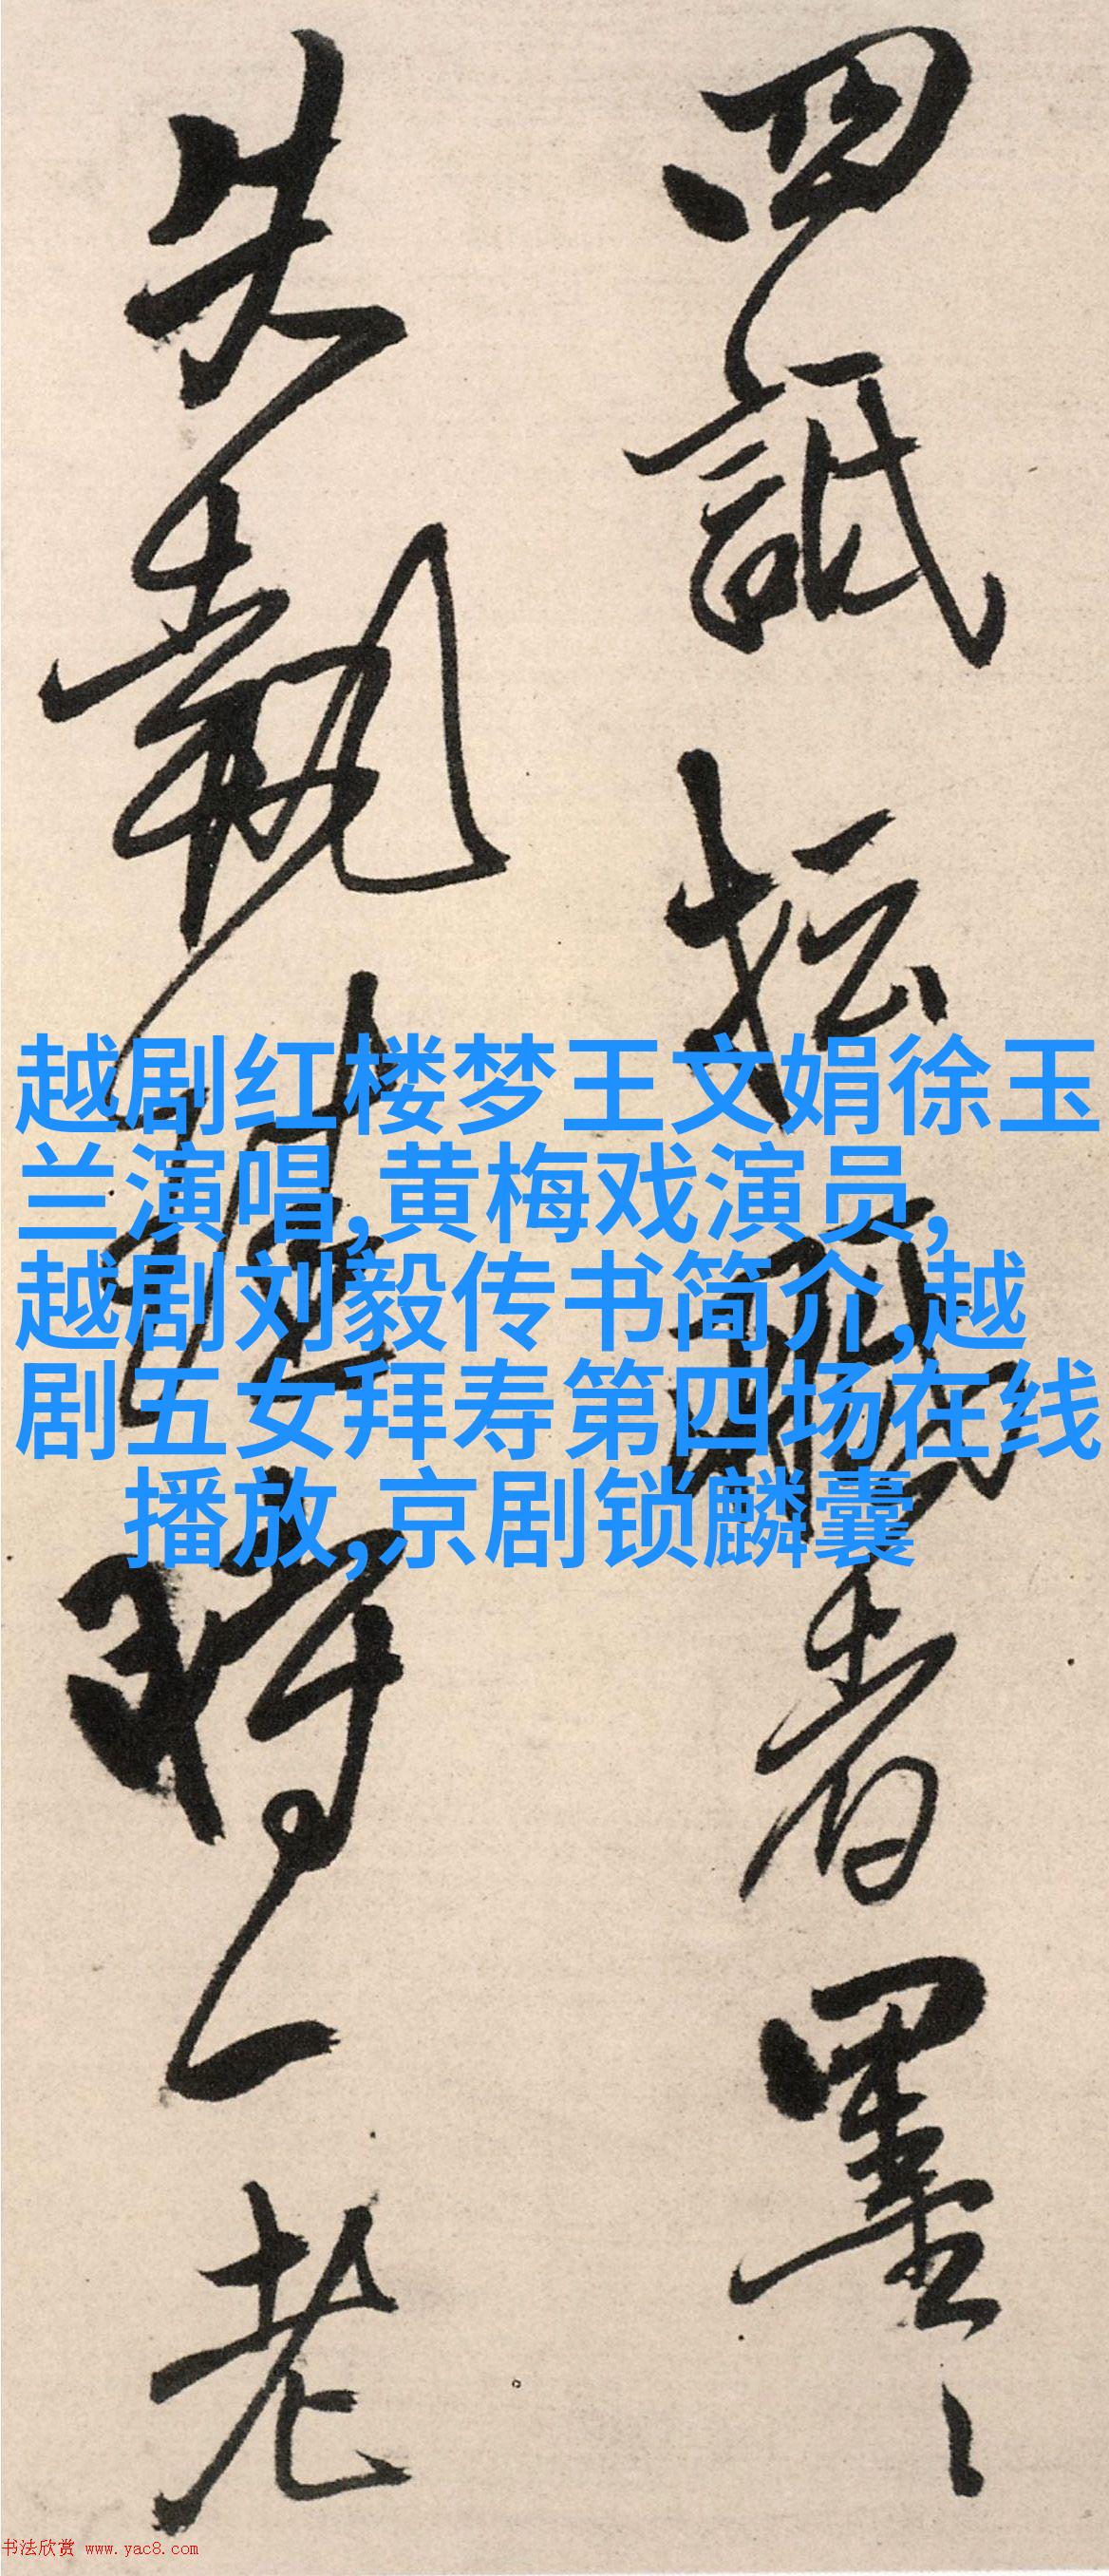 四詆坛
者墨
失執
時一老
越剧红楼梦王文娟徐玉
兰演唱,黄梅戏演员,
越剧刘毅传书简介,越
剧五女拜寿第四场在线
播放,京剧锁麟囊
书法欣赏 www.yac8.com